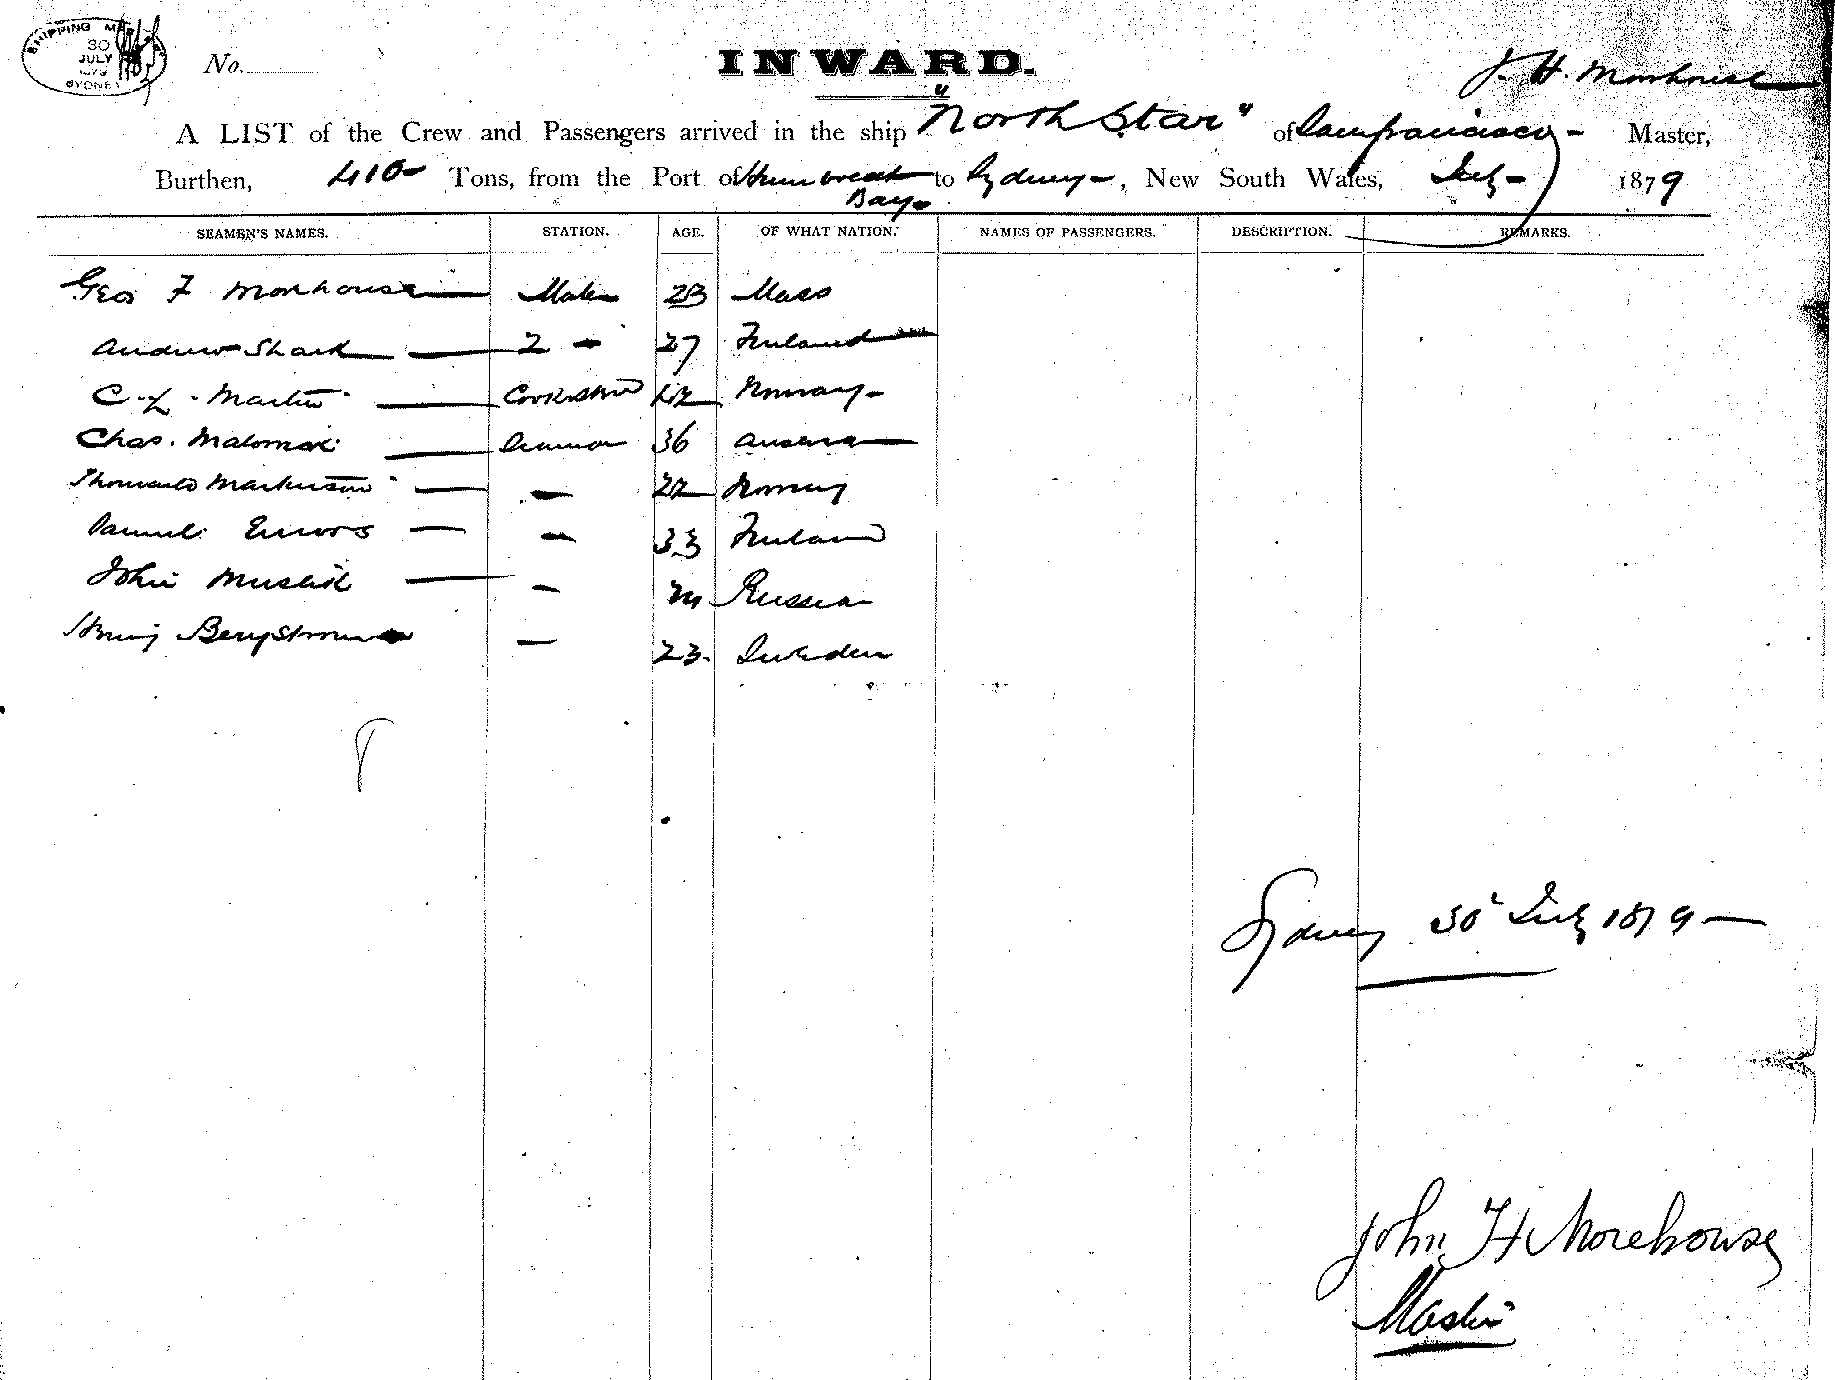 SHIPPING MA
30
JULY
SYDNEY
No.
INWARD.
J. H. Morehouse
A LIST of the Crew and Passengers arrived in the ship "North Star" of San francisco - Master,
Burthen, 410 Tons, from the Port of Humboldt Bay to Sydney -, New South Wales, July - 1879
SEAMEN'S NAMES. STATION. AGE. OF WHAT NATION. NAMES OF PASSENGERS. DESCRIPTION. REMARKS.
Geo F Morehouse Mate 23 Mass
Andrew Shark 2 - 27 Finland
C. L. Martin Cook & Stwd 42 Norway -
Chas. Seaman 36
22 Norway
33 Finland
John Russian
Bergstrom - 23. Sweden
Sydney 30 July 1879 -
John H Morehouse
Master